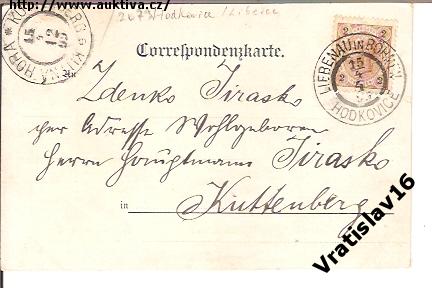 http://www.auktiva.cz/
267 Hodkovice / Liberec
KUTTENBERG
KUTNÁ HORA
15
Correspondenzkarte.
2 2
2 2
LIEBENAU in BÖHMEN
15
4
HODKOVICE
An
Zdenko Jirasko
per Adresse Wohlgeboren
Herrn Hauptmanns Jirasko
in Kuttenberg
Vratislav16